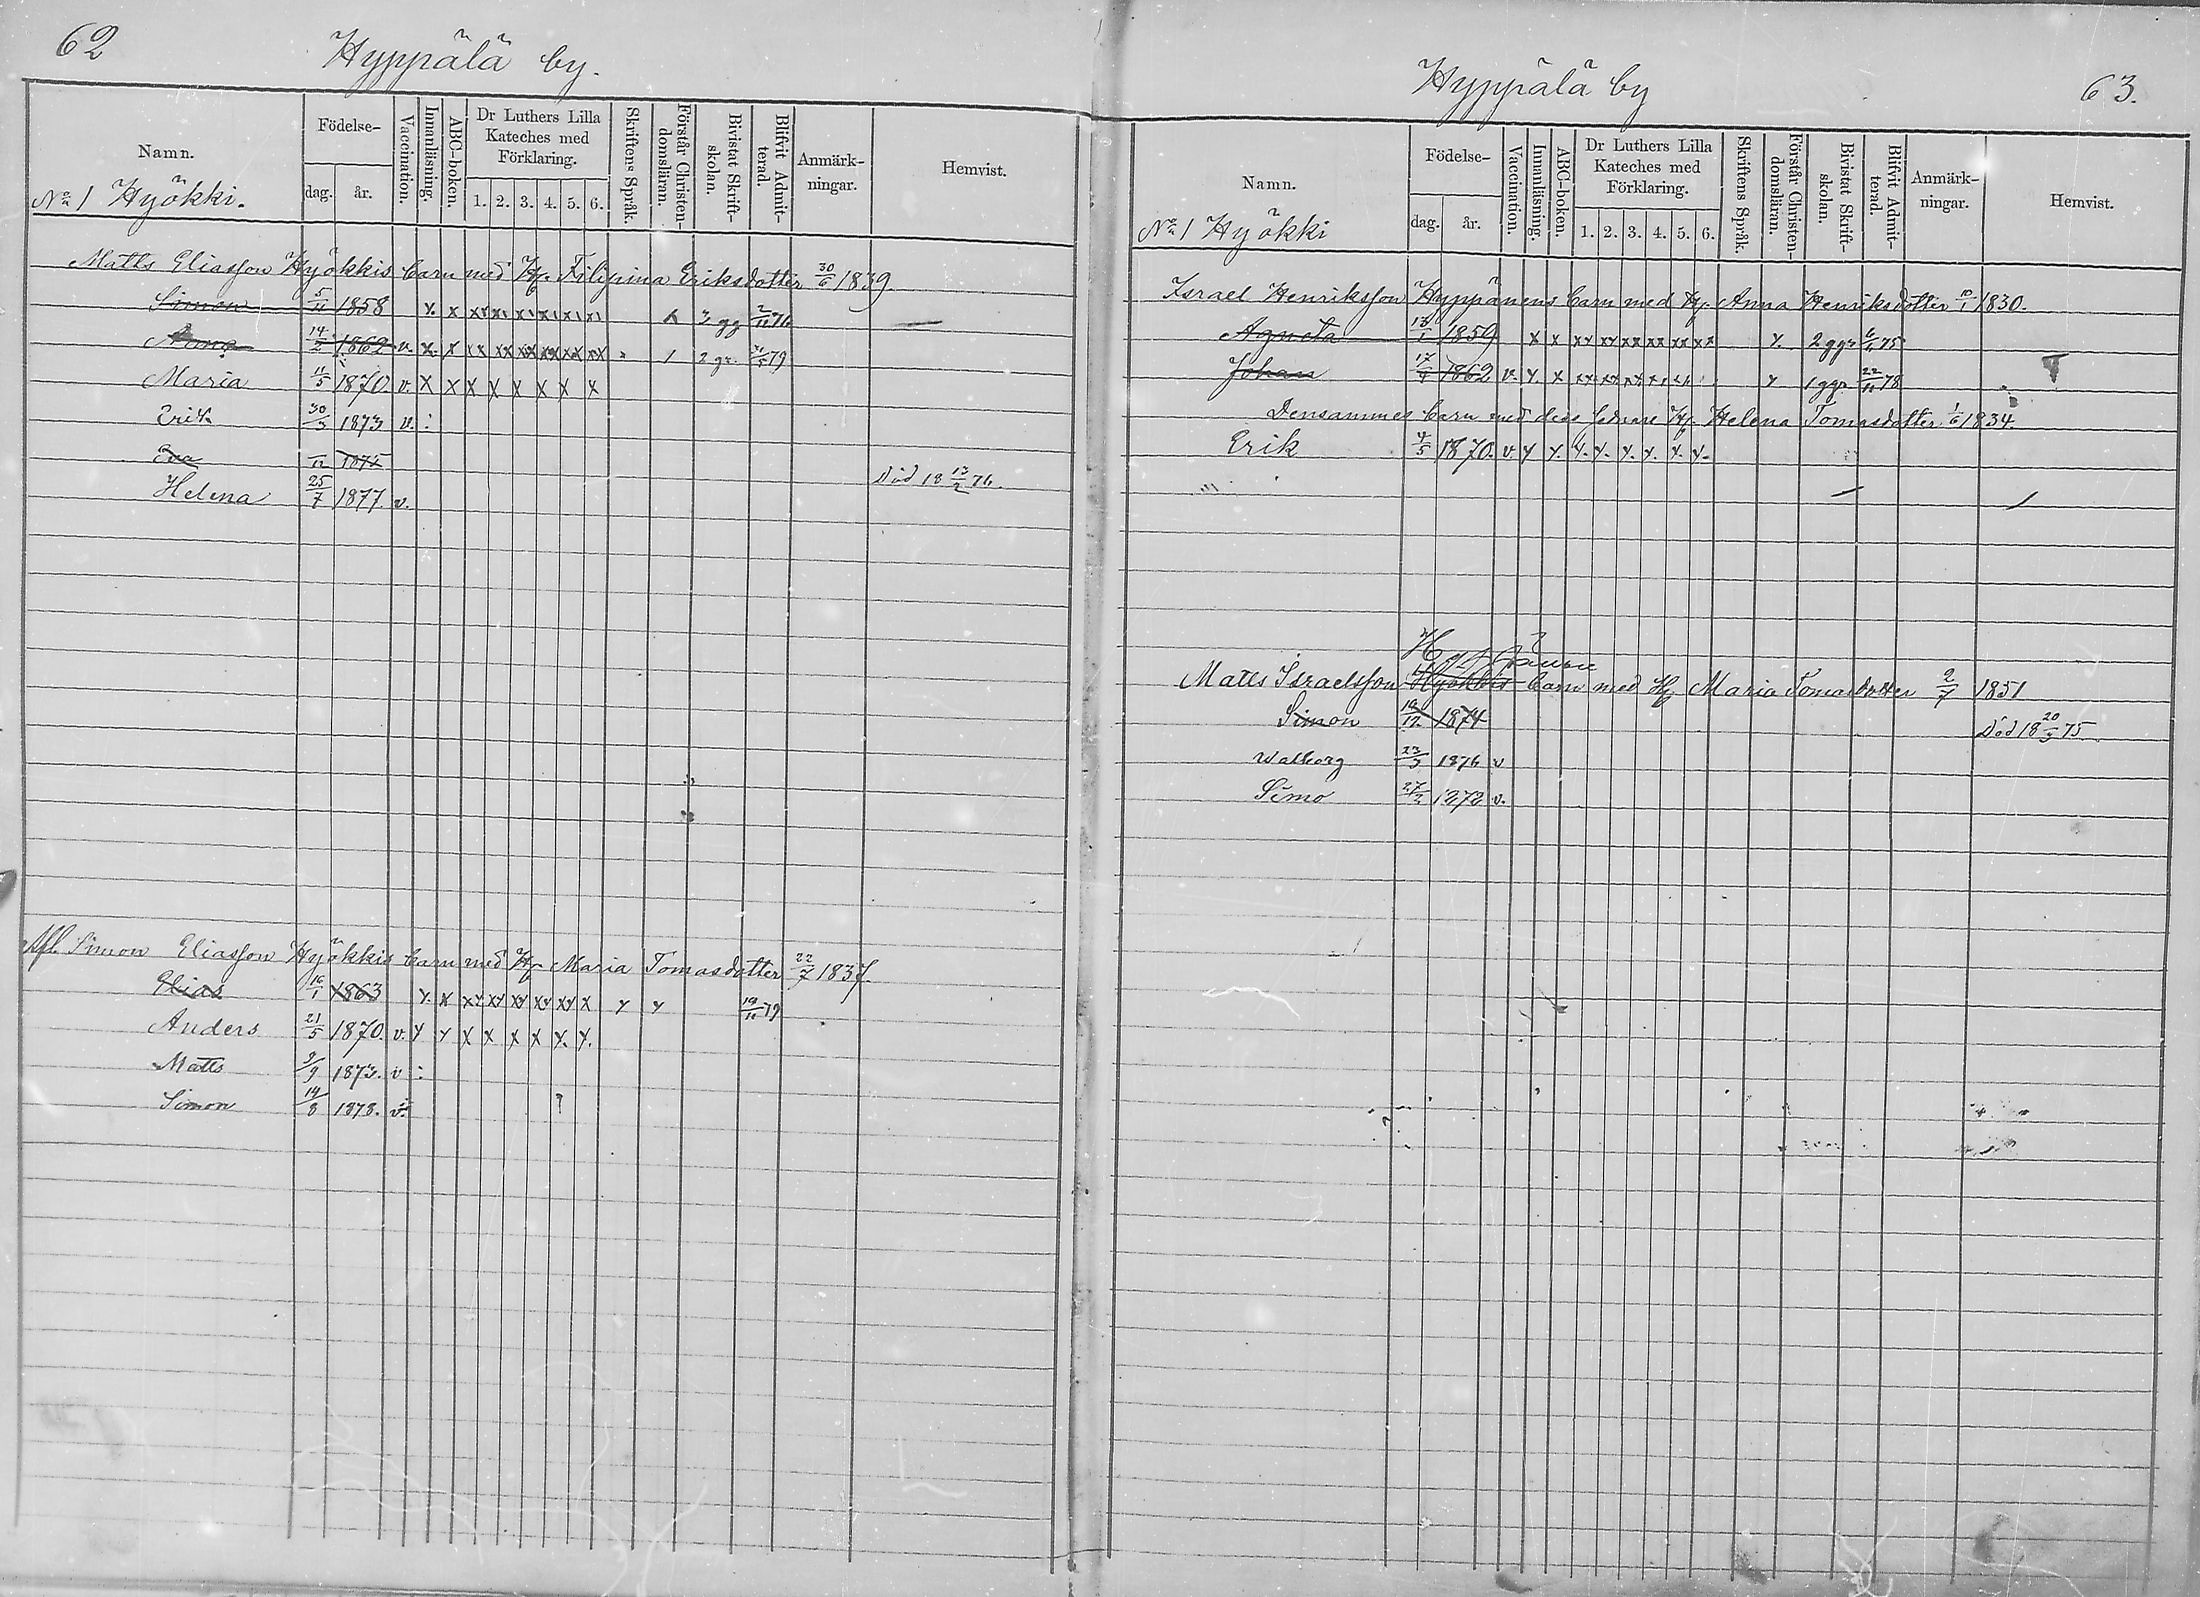 62
Hyppälä by.
Namn.
Födelse-
dag.
år.
Vaccination.
Innanläsning.
ABC-boken.
Dr Luthers Lilla
Kateches med
Förklaring.
1. 2. 3. 4. 5. 6.
Skriftens Språk.
Förstår Christen-
domsläran.
Bivistat Skrift-
skolan.
Blifvit Admit-
terad.
Anmärk-
ningar.
Hemvist.
No 1 Hyökki.
Matts Eliasson Hyökkis barn med H. Filipina Eriksdotter 30/6 1839
Simon 5/11 1858 x x x x x x x x 3 gg 2/11 76
Anna 14/2 1862 v. x x xx xx xx xx xx xx 1 2 gr. 79
Maria 11/5 1870. v. x x x x x x x x
Erik 30/3 1873 v. :
Eva /12 1875 Död 18 /2 76.
Helena 25/7 1877. v.
Afl. Simon Eliasson Hyökkis barn med H. Maria Tomasdotter 22/7 1837.
Elias 16/1 1863 x x xx xx xx xx xx x x x 19/11 79
Anders 21/5 1870. v. x x x x x x x. x.
Matts 3/9 1873. v :
Simon 14/8 1878. v.
Hyppälä by
63.
Namn.
Födelse-
dag.
år.
Vaccination.
Innanläsning.
ABC-boken.
Dr Luthers Lilla
Kateches med
Förklaring.
1. 2. 3. 4. 5. 6.
Skriftens Språk.
Förstår Christen-
domsläran.
Bivistat Skrift-
skolan.
Blifvit Admit-
terad.
Anmärk-
ningar.
Hemvist.
No 1 Hyökki
Israel Henriksson Hyppänens barn med H. Anna Henriksdotter 10/1 1830.
Agneta 1859 x x xx xx xx xx xx xx x. 2 ggr 75
Johan 1862 v. x. x x 1 ggr. 22/11 78
Densammes barn med dess senare H. Helena Tomasdotter 1/6 1834.
Erik 4/5 1870. v x x. x. x. x. x. x. x.
Hyppänens
Matts Israelsson Hyökkis barn med H. Maria Tomasdotter 2/7 1851
Simon 19/12 1874 Död 18 20/3 75
Walborg 23/3 1876 v
Simo 27/2 v.